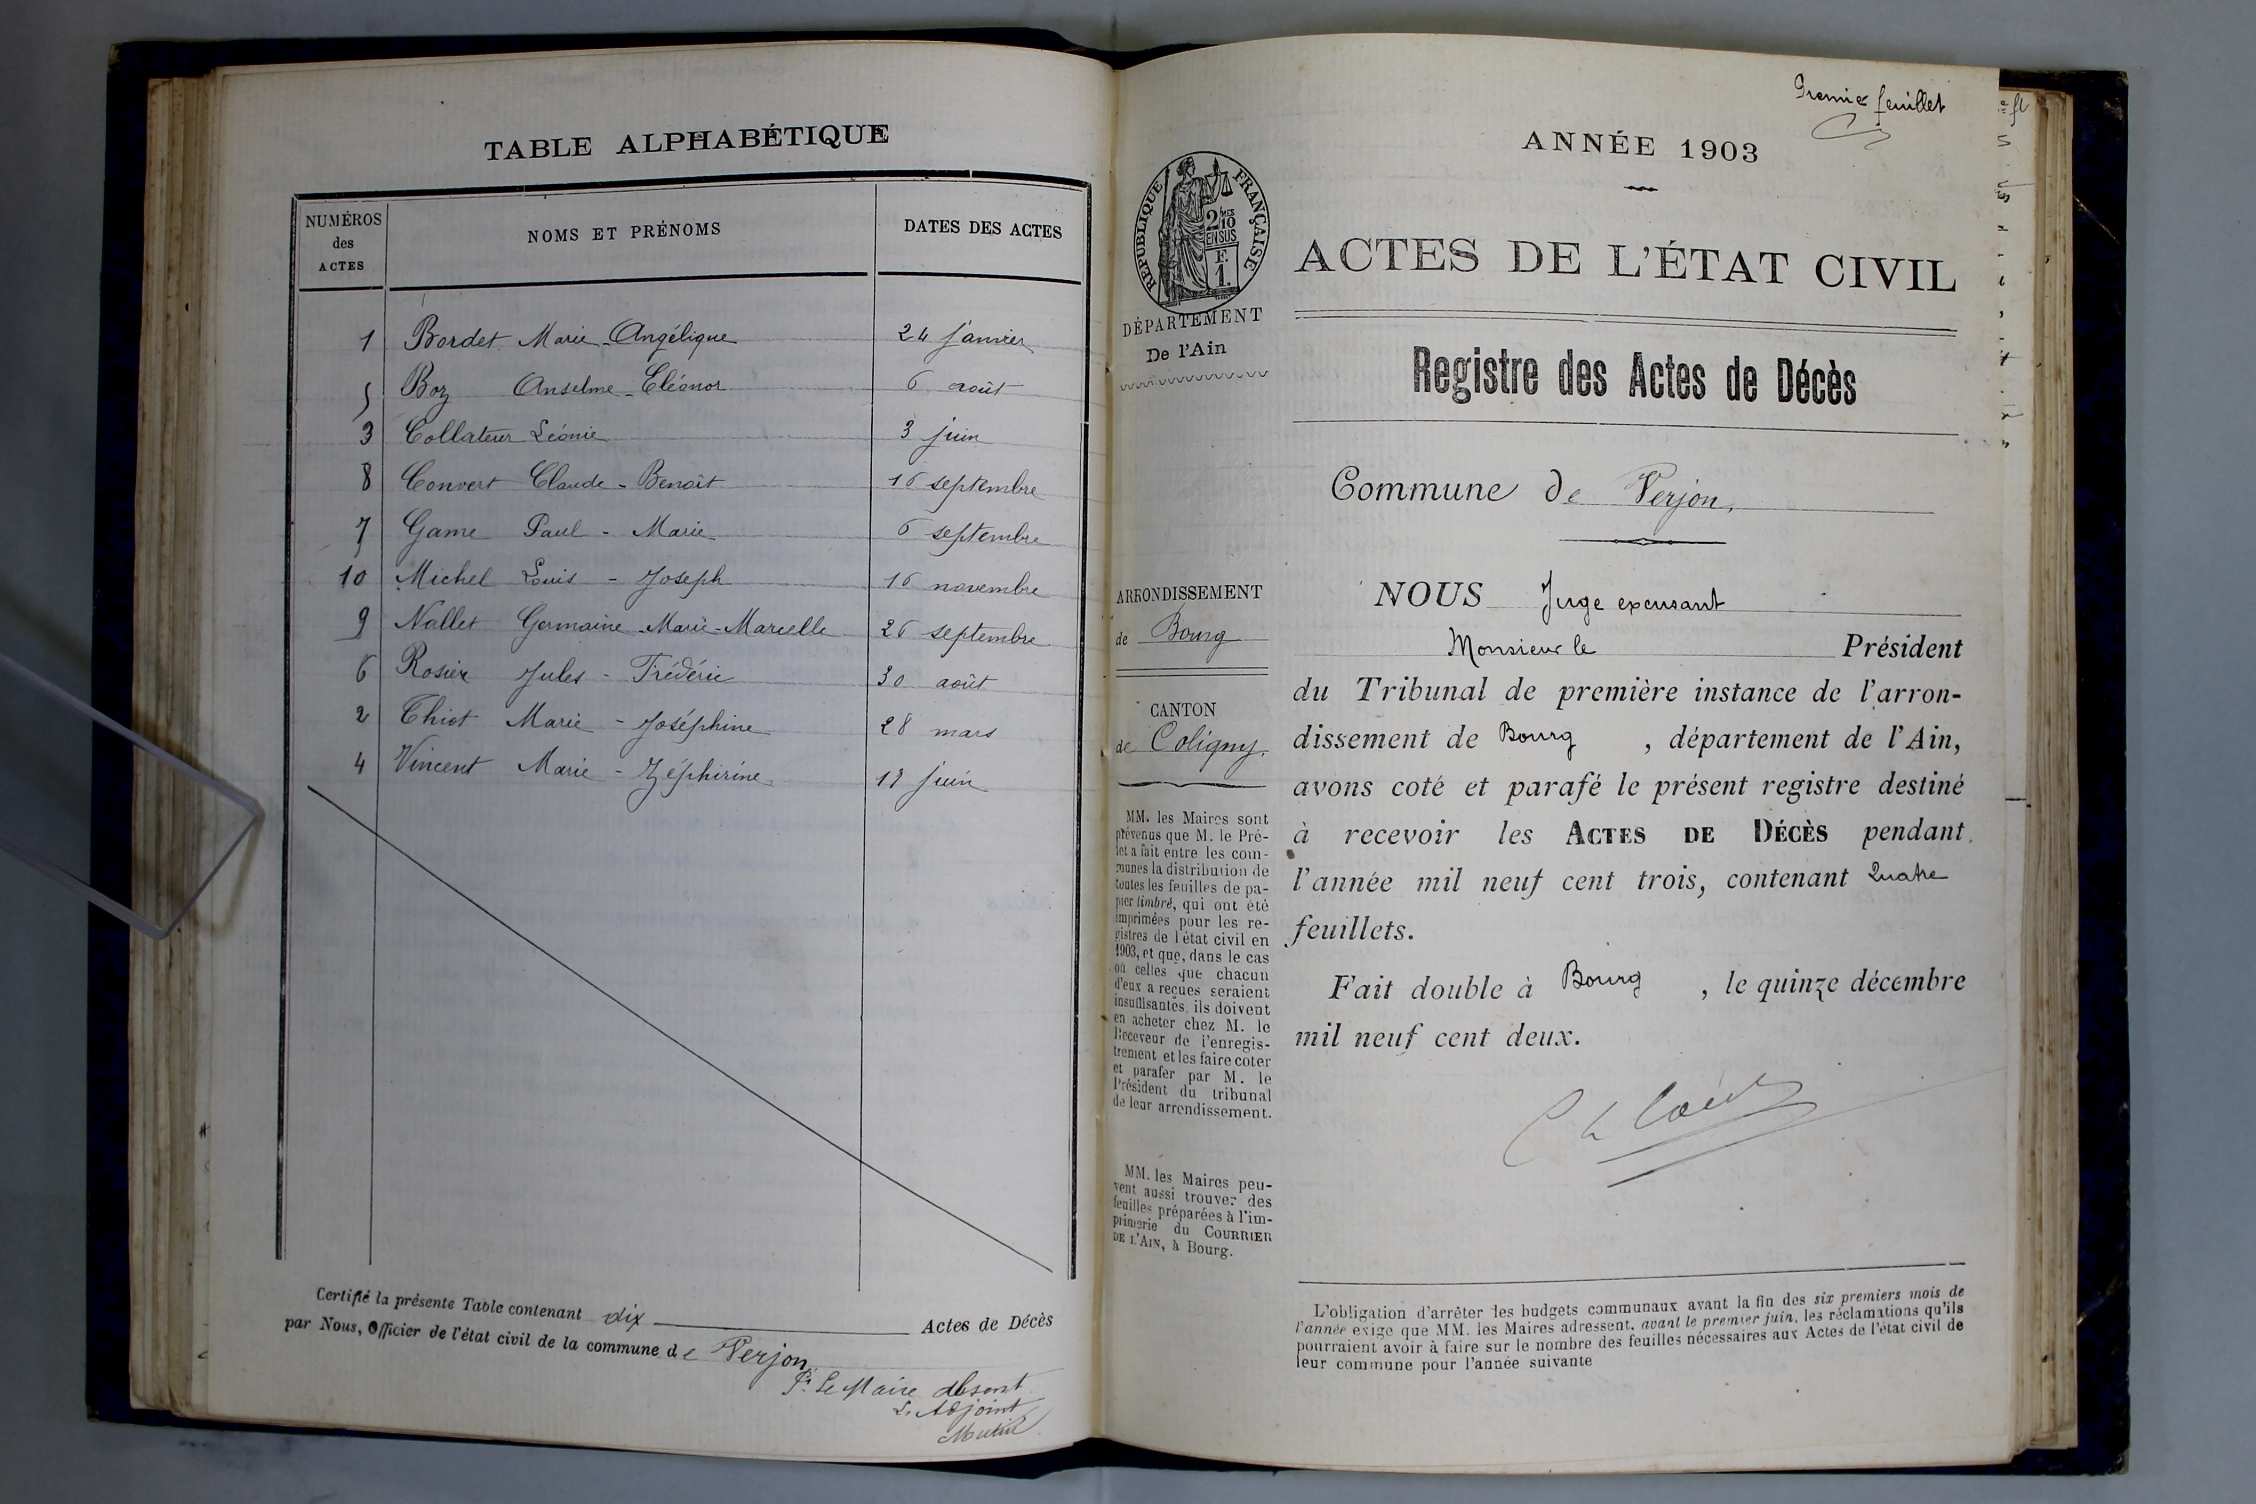 TABLE ALPHABÉTIQUE
NUMÉROS des ACTES
NOMS ET PRÉNOMS
DATES DES ACTES
1 Bordet Marie-Angélique 24 janvier
5 Boz Anselme-Eléonor 6 août
3 Collateur Léonie 3 juin
8 Convert Claude-Benoît 16 septembre
7 Game Paul-Marie 6 septembre
10 Michel Louis-Joseph 16 novembre
9 Nallet Germaine-Marie-Marcelle 26 septembre
6 Rosier Jules-Frédéric 30 août
2 Thiot Marie-Joséphine 28 mars
4 Vincent Marie-Zéphirine juin
Certifié la présente Table contenant dix Actes de Décès
par Nous, Officier de l'état civil de la commune de Verjon
Pr. Le Maire absent
L'Adjoint
Premier feuillet
RÉPUBLIQUE FRANÇAISE
2/10 MES
EN SUS
F.
1.
DÉPARTEMENT
De l'Ain
ARRONDISSEMENT
de Bourg
CANTON
de Coligny.
MM. les Maires sont
prévenus que M. le Pré-
fet a fait entre les com-
munes la distribution de
toutes les feuilles de pa-
pier timbré, qui ont été
imprimées pour les re-
gistres de l'état civil en
1903, et que, dans le cas
où celles que chacun
d'eux a reçues seraient
insuffisantes, ils doivent
en acheter chez M. le
Receveur de l'enregis-
trement et les faire coter
et parafer par M. le
Président du tribunal
de leur arrondissement.
MM. les Maires peu-
vent aussi trouver des
feuilles préparées à l'im-
primerie du COURRIER
DE L'AIN, à Bourg.
ANNÉE 1903
ACTES DE L'ÉTAT CIVIL
Registre des Actes de Décès
Commune de Verjon,
NOUS Juge excusant
Monsieur le Président
du Tribunal de première instance de l'arron-
dissement de Bourg , département de l'Ain,
avons coté et parafé le présent registre destiné
à recevoir les ACTES DE DÉCÈS pendant
l'année mil neuf cent trois, contenant Quatre
feuillets.
Fait double à Bourg , le quinze décembre
mil neuf cent deux.
L'obligation d'arrêter les budgets communaux avant la fin des six premiers mois de
l'année exige que MM. les Maires adressent, avant le premier juin, les réclamations qu'ils
pourraient avoir à faire sur le nombre des feuilles nécessaires aux Actes de l'état civil de
leur commune pour l'année suivante